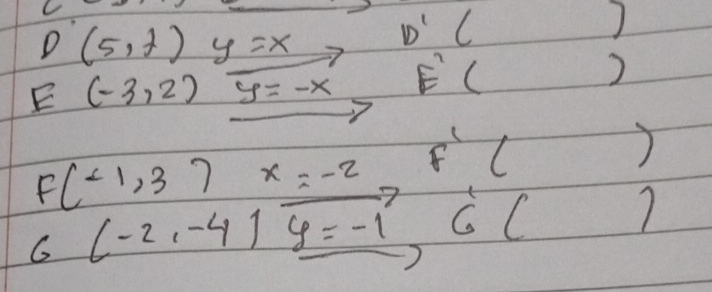 D (5,7) y=x → D' ( )
E (-3,2) y=-x → E' ( )
F(-1,3) x=-2 → F' ( )
G (-2,-4) y=-1 → G' ( )